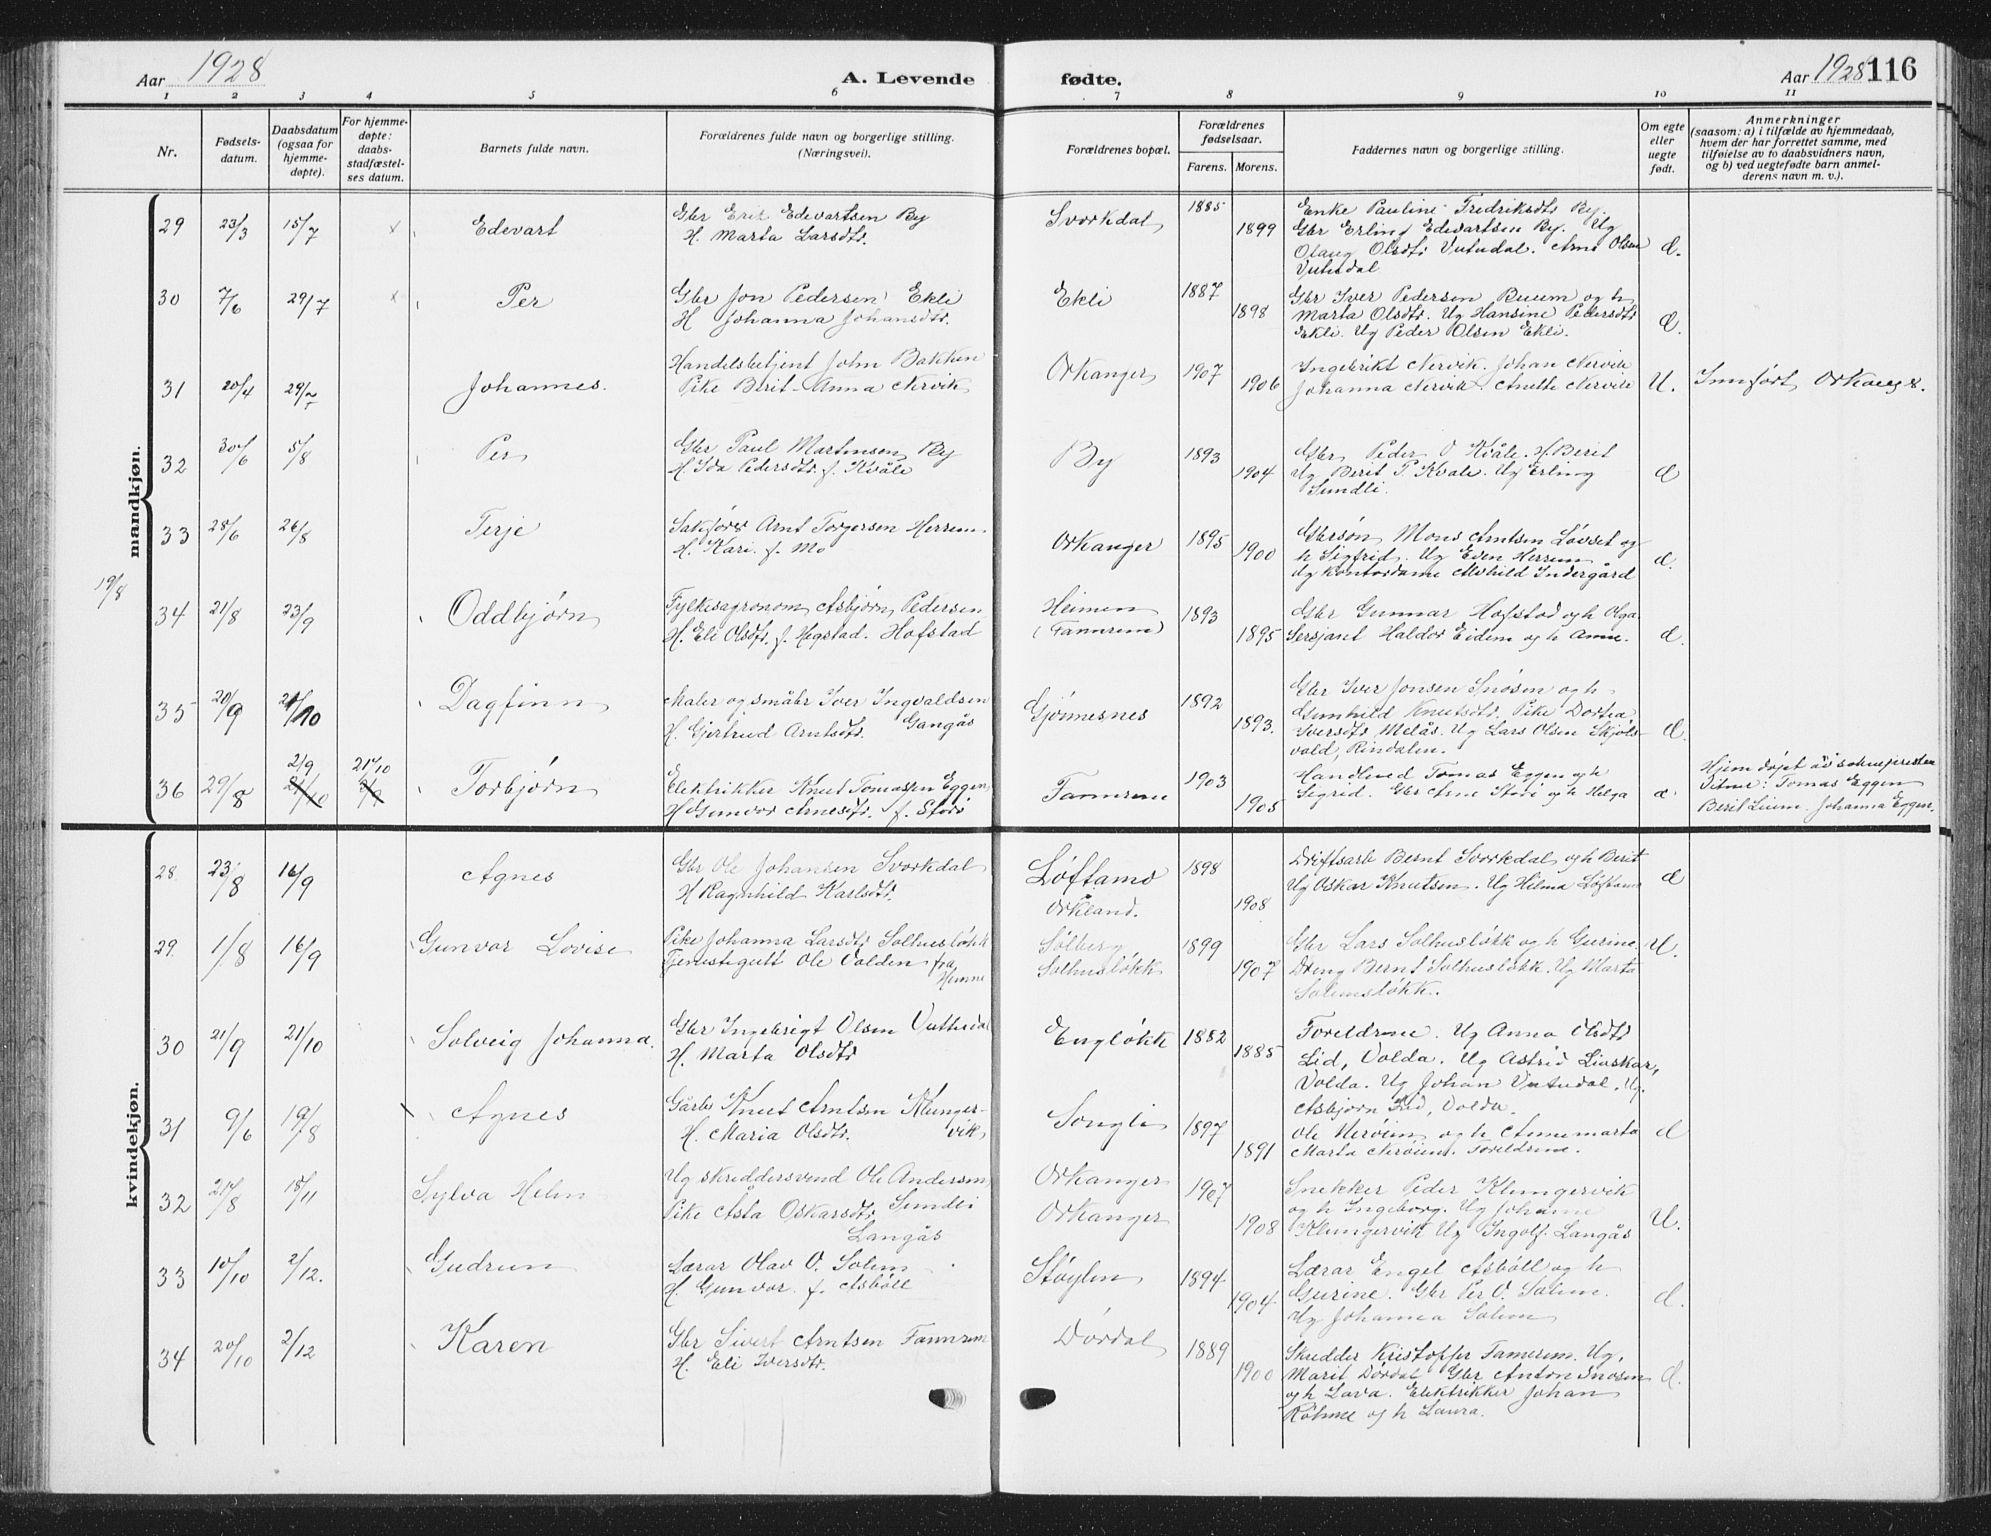 Aar 1928
A. Levende fødte.
Aar 1928 116
1 2 3 4 5 6 7 8 9 10 11
Nr.
Fødsels-
datum.
Daabsdatum
(ogsaa for
hjemme-
døpte).
For hjemme-
døpte:
daabs-
stadfæstel-
ses datum.
Barnets fulde navn.
Forældrenes fulde navn og borgerlige stilling.
(Næringsvei).
Forældrenes bopæl.
Forældrenes
fødselsaar.
Farens. Morens.
Faddernes navn og borgerlige stilling.
Om egte
eller
uegte
født.
Anmerkninger
(saasom: a) i tilfælde av hjemmedaab,
hvem der har forrettet samme, med
tilføielse av to daabsvidners navn,
og b) ved uegtefødte barn anmel-
derens navn m. v.).
mandkjøn.
19/8
29 23/3 15/7 x Edevart
Gbr Eriz Edevartsen By
H. Marta Larsdtr.
Svorkdal 1885 1899
Enke Pauline Fredriksdtr By.
Gbr Erling Edevartsen By. Ug
Olaug Olsdtr Vutudal. Arne Olsen
Vutudal
Æ.
30 7/6 29/7 x Per
Gbr Jon Pedersen Ekli
H Johanna Johansdtr.
Ekli 1887 1898
Gbr Iver Pedersen Buum og h
Marta Olsdtr. Ug Hansine Pedersdtr
Ekli. Ug Peder Olsen Ekli.
Æ.
31 20/4 29/7 Johannes.
Handelsbetjent John Bakken
Pike Berit-Anna Nervik
Orkanger 1907 1906
Ingebrikt Nervik. Johan Nervik
Johanna Nervik. Anette Nervik
U. Innført Orkanger.
32 30/6 5/8 Per
Gbr Paul Martinsen By
H. Ida Pedersdtr f. Kvåle
By 1893 1904
Gbr Peder O Kvåle. H Berit
Ug Berit P. Kvale. Ug Erling
Sundli.
Æ
33 28/6 26/8 Terje
Sakfører Arnt Torgersen Herrem.
H. Kari f. Mo
Orkanger 1895 1900
Gbrsøn Mons Arntsen Løvset og
h Sigfrid. Ug Even Herrem
Ug Kontordame Alvhild Indergård
Æ.
34 21/8 23/9 Oddbjørn
Fylkesagronom Asbjørn Pedersen
H. Eli Olsdtr. f. Hogstad. Hofstad
Heimen
(Fannrem) 1893 1895
Gbr Gunnar Hofstad og h Olga
Sersjant Haldor Eidem og h Anne.
Æ.
35 20/9 21/10 Dagfinn
Maler og småbr Iver Ingvaldsen
H. Gjertrud Arntsdtr. Gangås
Gjønnesnes 1892 1893.
Gbr Iver Jonsen Snøsen og h
Gunhild Knutsdtr. Pike Dortea
Iversdtr Melås. Ug Lars Olsen Skjøls-
vold, Rindalen.
Æ.
36 29/8 2/9 21/10 21/10 2/9 Torbjørn
Elektrikker Knut Tomassen Eggen
H Gunvor Arnesdtr. f. Storø
Fannrem 1903 1905
Handlend Tomas Eggen og h
Sigrid. Gbr Arne Storø og h Helga
Æ
Hjemdøpt av sokneprester
Vitne: Tomas Eggen
Berit Lium. Johanna Eggen.
kvindekjøn.
28. 23/8 16/9 Agnes
Gbr Ole Johansen Svorkdal
H Ragnhild Karlsdtr.
Løftamo
Orkland. 1898 1908
Driftsarb Bernt Svorkdal og h Berit
Ug Oskar Knutsen. Ug Hilma Løftamo
Æ
29. 1/8 16/9 Gunvor Lovise
Pike Johanna Larsdtr Solhusløkk
Tjenestegutt Ole Volden fra
Hemne
Sølberg
Solhusløkk 1899 1907
Gbr Lars Solhusløkk og h Gurine.
Dreng Bernt Solhusløkk. Ug Marta
Solemsløkk.
U.
30 21/9 21/10 Solveig Johanna.
Gbr Ingebrigt Olsen Vuttudal
H. Marta Olsdtr
Engløkk 1882 1885
Foreldrene. Ug Anna Olsdtr
Lid, Volda. Ug Astrid Livskar,
Volda. Ug Johan Vutudal. Ug.
Asbjørn Lid, Volda.
31 9/6 19/8 Agnes
Gårbr Knut Arntsen Klunger-
H. Maria Olsdtr. vik
Songli 1897 1891
Ole Nerøien og h Annemarta
Marta Nerøien. Foreldrene.
Æ
32 21/8 18/11 Sylva Helen
Ug skreddersvend Ole Andersen
Pike Åsta Oskarsdtr Sundli
Langås
Orkanger
Orkanger 1907 1908
Snekker Peder Klungervik
og h Ingeborg. Ug Johanne
Klungervik Ug Ingolf Langås
U.
33 10/10 2/12. Gudrun
Lærar Olav O. Solem
H. Gunvor. f. Asbøll
Støylen 1894 1904
Lærar Engel Asbøll og h
Gurine. Gbr Per O. Solem.
Ug Johanna Solem
Æ.
34 20/10 2/12 Karen
Gbr Sivert Arntsen Fannrem
H. Eli Iversdtr.
Dørdal 1889 1900
Skredder Kristoffer Fannrem. Ug.
Marit Dørdal Gbr Anton Snøsen
og h Lava. Elektrikker Johan
Røhme og h Laura.
Æ.